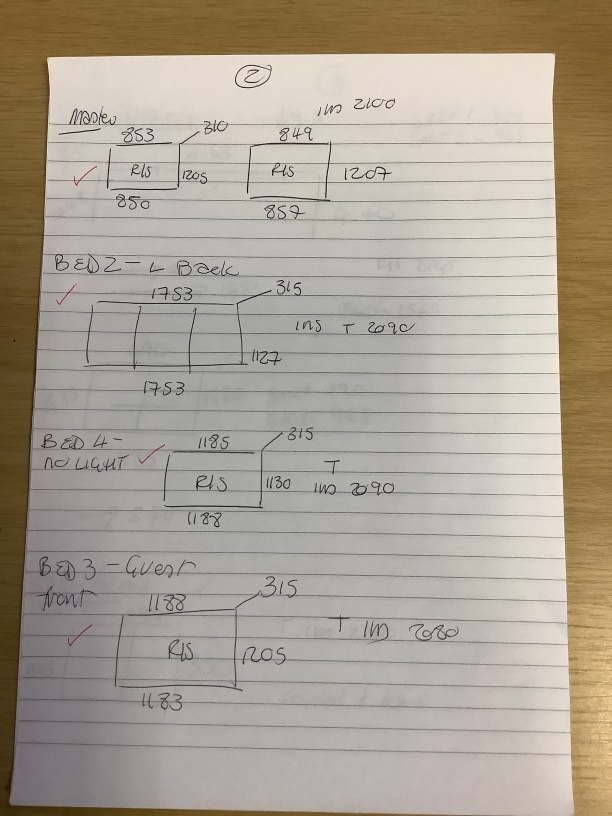 2
Master
1m 2100
853 310 849
R/S 1205 R/S 1207
850 857
BED 2 - L Back
1753 315
1m T 2090
1127
1753
BED 4 - 1185 315
NO LIGHT R/S 1130 T
1m 2090
1188
BED 3 - Guest
front 1188 315
R/S 1205 T 1m 2080
1183